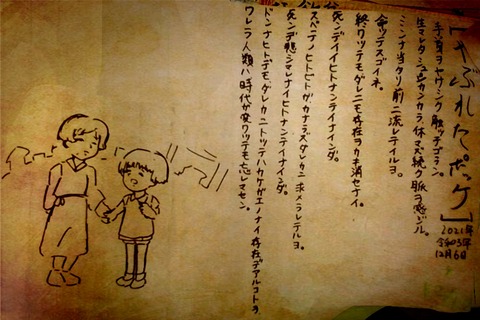 やぶれたポッケ」
2021年
令和03年
12月6日
手首ヲヤサシク触ッテゴラン。
生マレタシュンカンカラ、休マズ続ク脈ヲ感ジル。
ミンナ当タリ前ニ流レテルヨ。
命ツテスゴイネ。
終ワツテモダレニモ存在ヲカキ消セナイ。
死ンデイイヒトナンテイナインダ。
スベテノヒトビトガカナラズダレカニ求メラレテルヨ。
死ンデ悲シマレナイヒトナンテイナインダ。
ドンナヒトデモ、ダレカニトツテハカケガエノナイ存在デアルコトヲ、
ワレラ人類ハ時代ガ変ワツテモ忘レマセン。